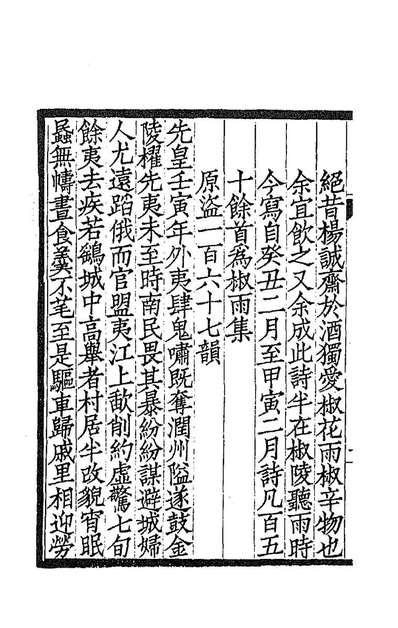 絕昔楊誠齋於酒獨愛椒花雨椒辛物也
余宜飲之又余成此詩半在椒陵聽雨時
今寫自癸丑二月至甲寅二月詩凡百五
十餘首為椒雨集
原盜一百六十七韻
先皇壬寅年外夷肆鬼嘯既奪潤州隘遂鼓金
陵櫂先夷未至時南民畏其暴紛紛謀避城婦
人尤遠蹈俄而官盟夷江上歃削約虛驚七旬
餘夷去疾若鷂城中高舉者村居半改貌宵眠
蟁無幬晝食羹不芼至是驅車歸戚里相迎勞